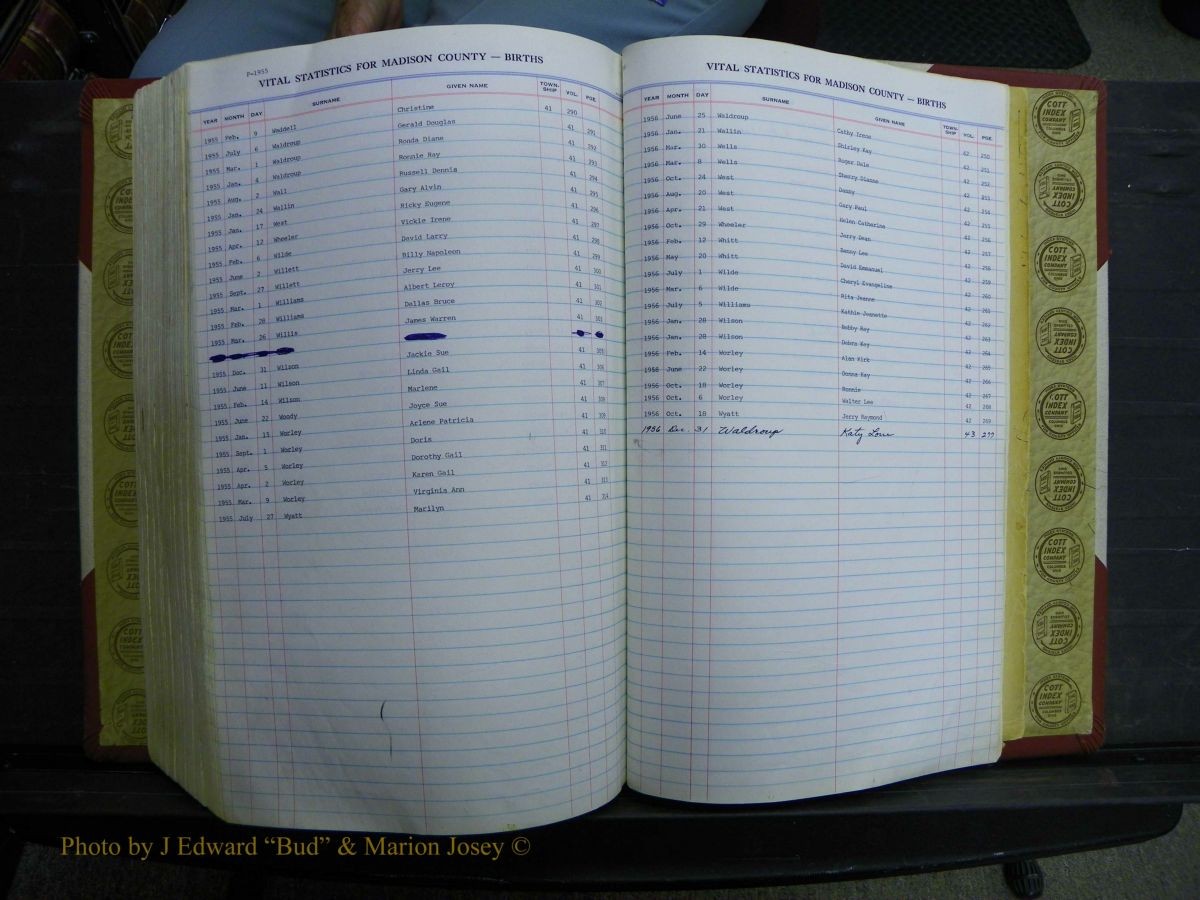 P-1955
VITAL STATISTICS FOR MADISON COUNTY — BIRTHS
YEAR MONTH DAY SURNAME GIVEN NAME TOWN-SHIP VOL. PGE.
1955 Feb. 9 Waddell Christine 41 290
1955 July 6 Waldroup Gerald Douglas 41 291
1955 Mar. 1 Waldroup Ronda Diane 41 292
1955 Jan. 4 Waldroup Ronnie Ray 41 293
1955 Aug. 2 Wall Russell Dennis 41 294
1955 Jan. 24 Wallin Gary Alvin 41 295
1955 Jan. 17 West Ricky Eugene 41 296
1955 Apr. 12 Wheeler Vickie Irene 41 297
1955 Feb. 6 Wilde David Larry 41 298
1955 June 2 Willett Billy Napoleon 41 299
1955 Sept. 27 Willett Jerry Lee 41 300
1955 Mar. 1 Williams Albert Leroy 41 301
1955 Feb. 28 Williams Dallas Bruce 41 302
1955 Mar. 26 Willis James Warren 41 303
1955 Dec. 31 Wilson Jackie Sue 41 305
1955 June 11 Wilson Linda Gail 41 306
1955 Feb. 14 Wilson Marlene 41 307
1955 June 22 Woody Joyce Sue 41 308
1955 Jan. 13 Worley Arlene Patricia 41 309
1955 Sept. 1 Worley Doris 41 310
1955 Apr. 5 Worley Dorothy Gail 41 311
1955 Apr. 2 Worley Karen Gail 41 312
1955 Mar. 9 Worley Virginia Ann 41 313
1955 July 27 Wyatt Marilyn 41 314
VITAL STATISTICS FOR MADISON COUNTY — BIRTHS
YEAR MONTH DAY SURNAME GIVEN NAME TOWN-SHIP VOL. PGE.
1956 June 25 Waldroup Cathy Irene 42 250
1956 Jan. 21 Wallin Shirley Kay 42 251
1956 Mar. 30 Wells Roger Dale 42 252
1956 Mar. 8 Wells Sherry Dianne 42 253
1956 Oct. 24 West Danny 42 254
1956 Aug. 20 West Gary Paul 42 255
1956 Apr. 21 West Helen Catherine 42 256
1956 Oct. 29 Wheeler Jerry Dean 42 257
1956 Feb. 12 Whitt Danny Lee 42 258
1956 May 20 Whitt David Emmanuel 42 259
1956 July 1 Wilde Cheryl Evangeline 42 260
1956 Mar. 6 Wilde Rita Jeanne 42 261
1956 July 5 Williams Kathie Jeanette 42 262
1956 Jan. 28 Wilson Bobby Ray 42 263
1956 Jan. 28 Wilson Debra Kay 42 264
1956 Feb. 14 Worley Alan Kirk 42 265
1956 June 22 Worley Donna Kay 42 266
1956 Oct. 18 Worley Ronnie 42 267
1956 Oct. 6 Worley Walter Lee 42 268
1956 Oct. 18 Wyatt Jerry Raymond 42 269
1956 Dec. 31 Waldroup Katy Lou 43 277
COTT INDEX COMPANY
COLUMBUS OHIO
Photo by J Edward “Bud” & Marion Josey ©